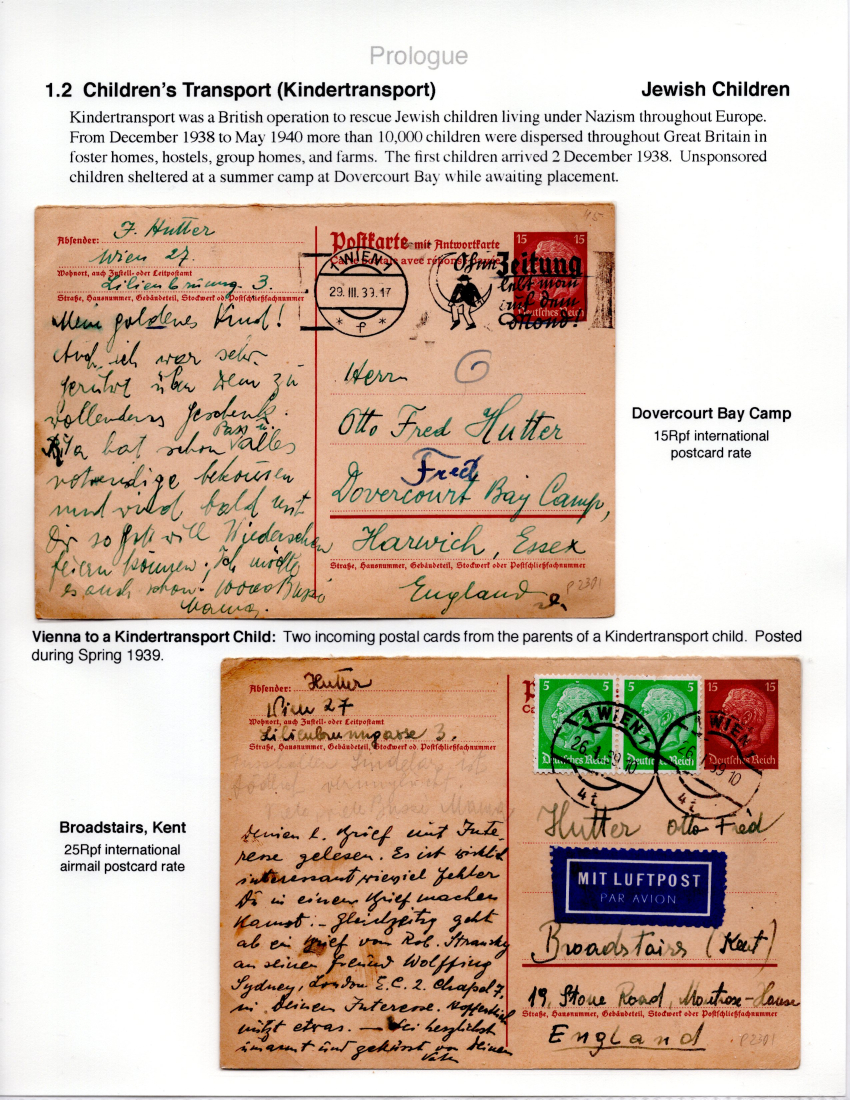 Prologue
1.2 Children's Transport (Kindertransport) Jewish Children
Kindertransport was a British operation to rescue Jewish children living under Nazism throughout Europe.
From December 1938 to May 1940 more than 10,000 children were dispersed throughout Great Britain in
foster homes, hostels, group homes, and farms. The first children arrived 2 December 1938. Unsponsored
children sheltered at a summer camp at Dovercourt Bay while awaiting placement.
Absender: J. Hutter
Wien 27.
Wohnort, auch Zustell- oder Leitpostamt
3.
Straße, Hausnummer, Gebäudeteil, Stockwerk od. Postschließfachnummer
Mein goldenes Kind!
Auch ich war sehr
gerührt über Dein zu
Geschenk.
Pass u.
hat schon alles
notwendige bekommen
und wird bald mit
Dir so Gott will Wiedersehen
feiern können. Ich möchte
es auch schon. 10000 Bussi
Mama.
Postkarte mit Antwortkarte
Carte postale avec réponse payée
15 15
Deutsches Reich
1 WIEN 1
29. III. 39. 17
* f *
Ohne Zeitung
lebt man
auf dem
Mond!
Herrn
Otto Fred Hutter
Fred
Dovercourt Bay Camp,
Harwich, Essex
Straße, Hausnummer, Gebäudeteil, Stockwerk oder Postschließfachnummer
England
P2301
Dovercourt Bay Camp
15Rpf international
postcard rate
Vienna to a Kindertransport Child: Two incoming postal cards from the parents of a Kindertransport child. Posted
during Spring 1939.
Absender: Hutter
Wien 27
Wohnort, auch Zustell- oder Leitpostamt
Lilienbrunngasse 3.
Straße, Hausnummer, Gebäudeteil, Stockwerk od. Postschließfachnummer
Deinen l. Brief mit Inte-
resse gelesen. Es ist wirklich
interessant wieviel Fehler
Du in einem Brief machen
kannst. - Gleichzeitig geht
ab ein Brief von Rob. Stransky
an seinen Freund Wolffing
Sydney, London E.C. 2. Chapel 7,
in Deinem Interesse. Hoffentlich
nützt etwas. — Sei herzlichst
umarmt und geküsst von Deinem
Vater
5 5
Deutsches Reich
5 5
Deutsches Reich
15 15
Deutsches Reich
1 WIEN 1
4t
1 WIEN
4t
Hutter Otto Fred
MIT LUFTPOST
PAR AVION
Broadstairs (Kent)
19, Stone Road, Montrose-House
Straße, Hausnummer, Gebäudeteil, Stockwerk oder Postschließfachnummer
England
P2301
Broadstairs, Kent
25Rpf international
airmail postcard rate